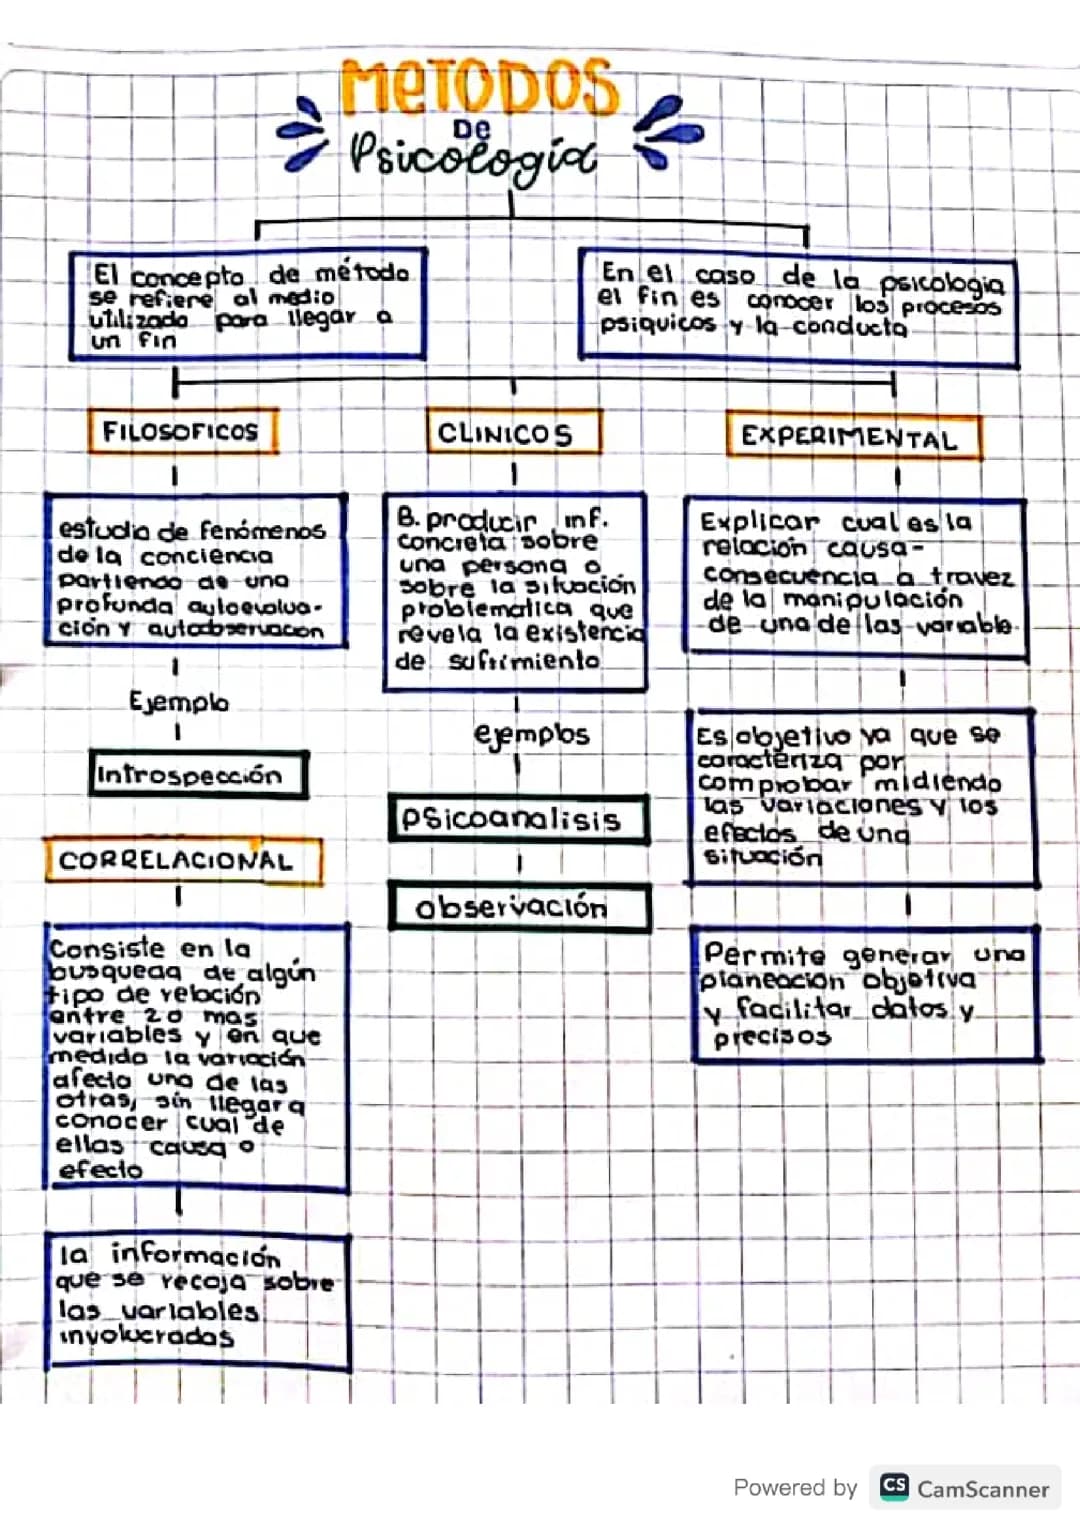 METODOS
DE
Psicología
El concepto de método
se refiere al medio
utilizado para llegar a
un fin
En el caso de la psicologia
el fin es conocer los procesos
psiquicos y la conducta
FILOSOFICOS
CLINICOS
EXPERIMENTAL
estudio de fenómenos
de la conciencia
partiendo de una
profunda autoevolua-
ción y autobservacon
Ejemplo
Introspección
CORRELACIONAL
Consiste en la
busqueda de algún
tipo de relación
entre 2 o mas
variables y en que
medida la variación
afecta una de las
otras, sin llegar a
conocer cual de
ellas causa o
efecto
la información
que se recoja sobre
las variables
involucradas
B. producir inf.
concreta sobre
una persona o
sobre la situación
problematica que
revela la existencia
de sufrimiento
ejemplos
psicoanalisis
observación
Explicar cual es la
relación causa-
consecuencia a travez
de la manipulación
de una de las variable
Es objetivo ya que se
caracteriza por
comprobar midiendo
las variaciones y los
efectos de una
situación
Permite generar una
planeación objetiva
y facilitar datos y
precisos
Powered by CS CamScanner